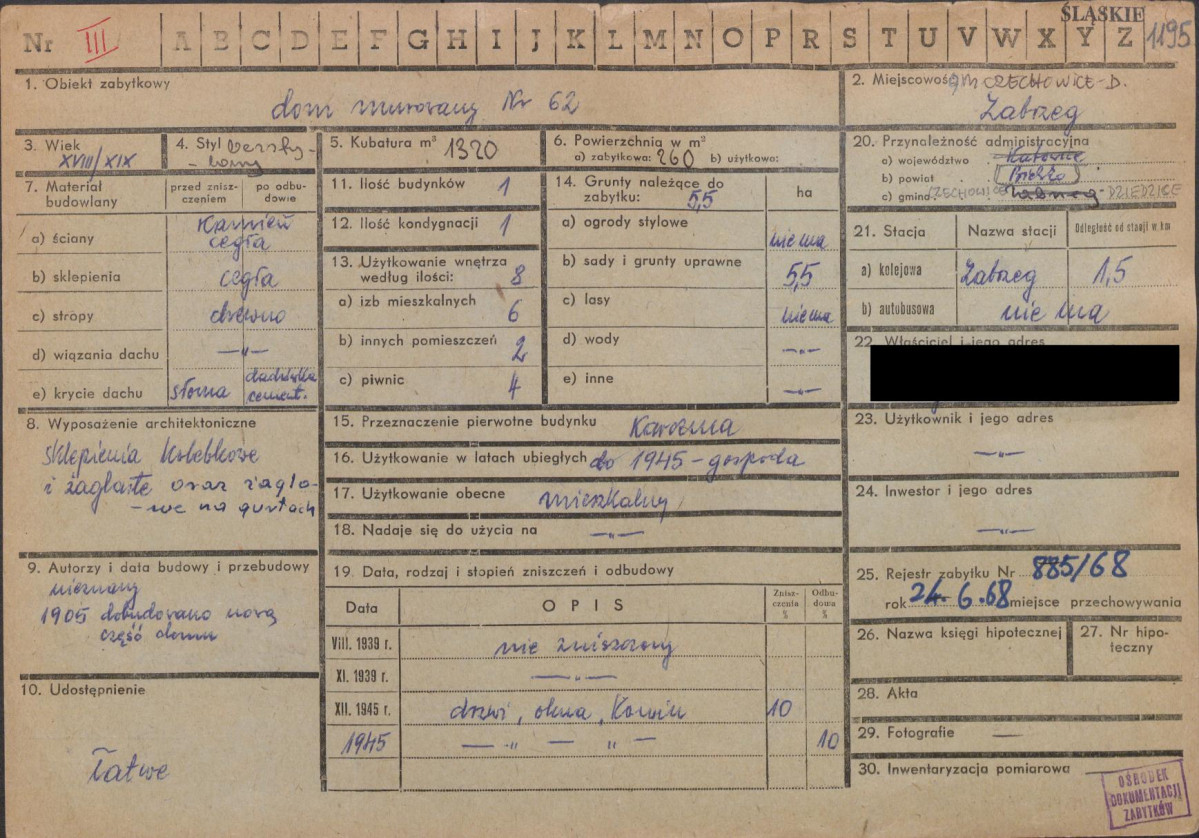 Nr III A B C D E F G H I J K L M N O P R S T U V W X Y Z ŚLĄSKIE 1195
1. Obiekt zabytkowy
dom murowany Nr 62
2. Miejscowość gm CZECHOWICE-D.
Zabrzeg
3. Wiek
XVIII/XIX
4. Styl
5. Kubatura m³ 1320
6. Powierzchnia w m²
a) zabytkowa: 260 b) użytkowa:
20. Przynależność administracyjna
a) województwo Katowice
b) powiat Bielsko
c) gmina CZECHOWICE Zabrzeg - DZIEDZICE
7. Materiał budowlany
przed zniszczeniem
po odbudowie
a) ściany kamień
cegła
b) sklepienia cegła
c) stropy drewno
d) wiązania dachu —„—
e) krycie dachu słoma dachówka
cement.
11. Ilość budynków 1
12. Ilość kondygnacji 1
13. Użytkowanie wnętrza
według ilości: 8
a) izb mieszkalnych 6
b) innych pomieszczeń 2
c) piwnic 4
14. Grunty należące do
zabytku: 5,5
ha
a) ogrody stylowe nie ma
b) sady i grunty uprawne 5,5
c) lasy nie ma
d) wody —„—
e) inne —„—
21. Stacja Nazwa stacji Odległość od stacji w km
a) kolejowa Zabrzeg 1,5
b) autobusowa nie ma
22. Właściciel i jego adres
8. Wyposażenie architektoniczne
sklepienia kolebkowe
i żaglaste oraz żaglo-
-we na gurtach
15. Przeznaczenie pierwotne budynku Karczma
16. Użytkowanie w latach ubiegłych do 1945 - gospoda
17. Użytkowanie obecne mieszkalny
18. Nadaje się do użycia na —„—
23. Użytkownik i jego adres
—„—
24. Inwestor i jego adres
—„—
9. Autorzy i data budowy i przebudowy
nieznany
1905 dobudowano nową
część domu
19. Data, rodzaj i stopień zniszczeń i odbudowy
Data OPIS Zniszczenia % Odbudowa %
VIII. 1939 r. nie zniszczony
XI. 1939 r. —„—
XII. 1945 r. drzwi, okna, 10
1945 — „ — „ — 10
25. Rejestr zabytku Nr 885/68
rok 24.6.68 miejsce przechowywania
26. Nazwa księgi hipotecznej
27. Nr hipoteczny
10. Udostępnienie
Łatwe
28. Akta
29. Fotografie —
30. Inwentaryzacja pomiarowa
OŚRODEK
DOKUMENTACJI
ZABYTKÓW